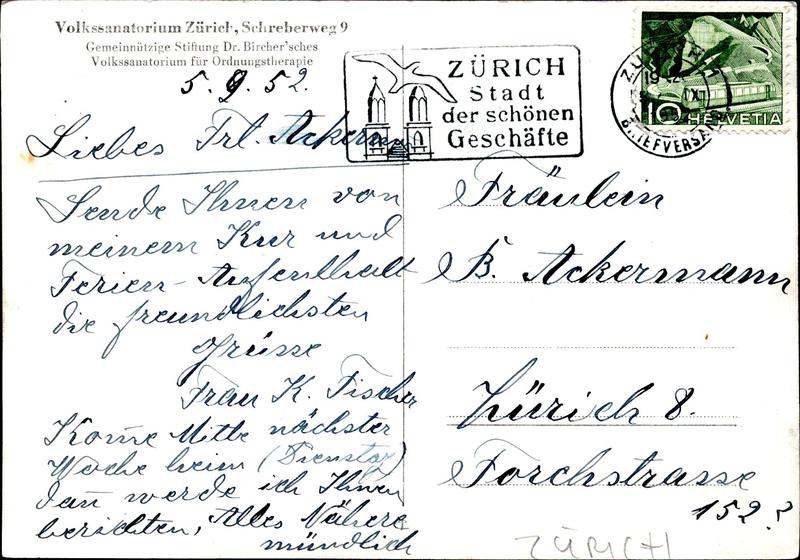 Volkssanatorium Zürich, Schreberweg 9
Gemeinnützige Stiftung Dr. Bircher'sches
Volkssanatorium für Ordnungstherapie
5. 9. 52.
Liebes Frl. Ackermann
Sende Ihnen von
meinem Kur und
Ferien-Aufenthalt
die freundlichsten
Grüsse
Frau K. Fischer
Kom̅e Mitte nächster
Woche heim (Dienstag)
dan̅ werde ich Ihnen
berichten, Alles Nähere
mündlich
ZÜRICH
Stadt
der schönen
Geschäfte
BRIEFVERSAND
10 HELVETIA
Fräulein
B. Ackermann
Zürich 8.
Forchstrasse
152
ZÜRICH